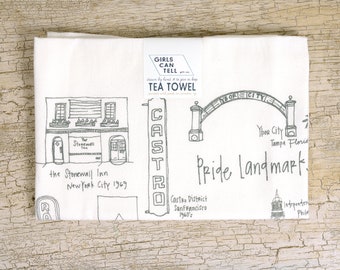 GIRLS
CAN
TELL
TEA TOWEL
The
Stonewall Inn
the Stonewall Inn
New York City 1969
CASTRO
Castro District
San Francisco
1960's
Ybor City
Tampa Florida
Pride Landmark